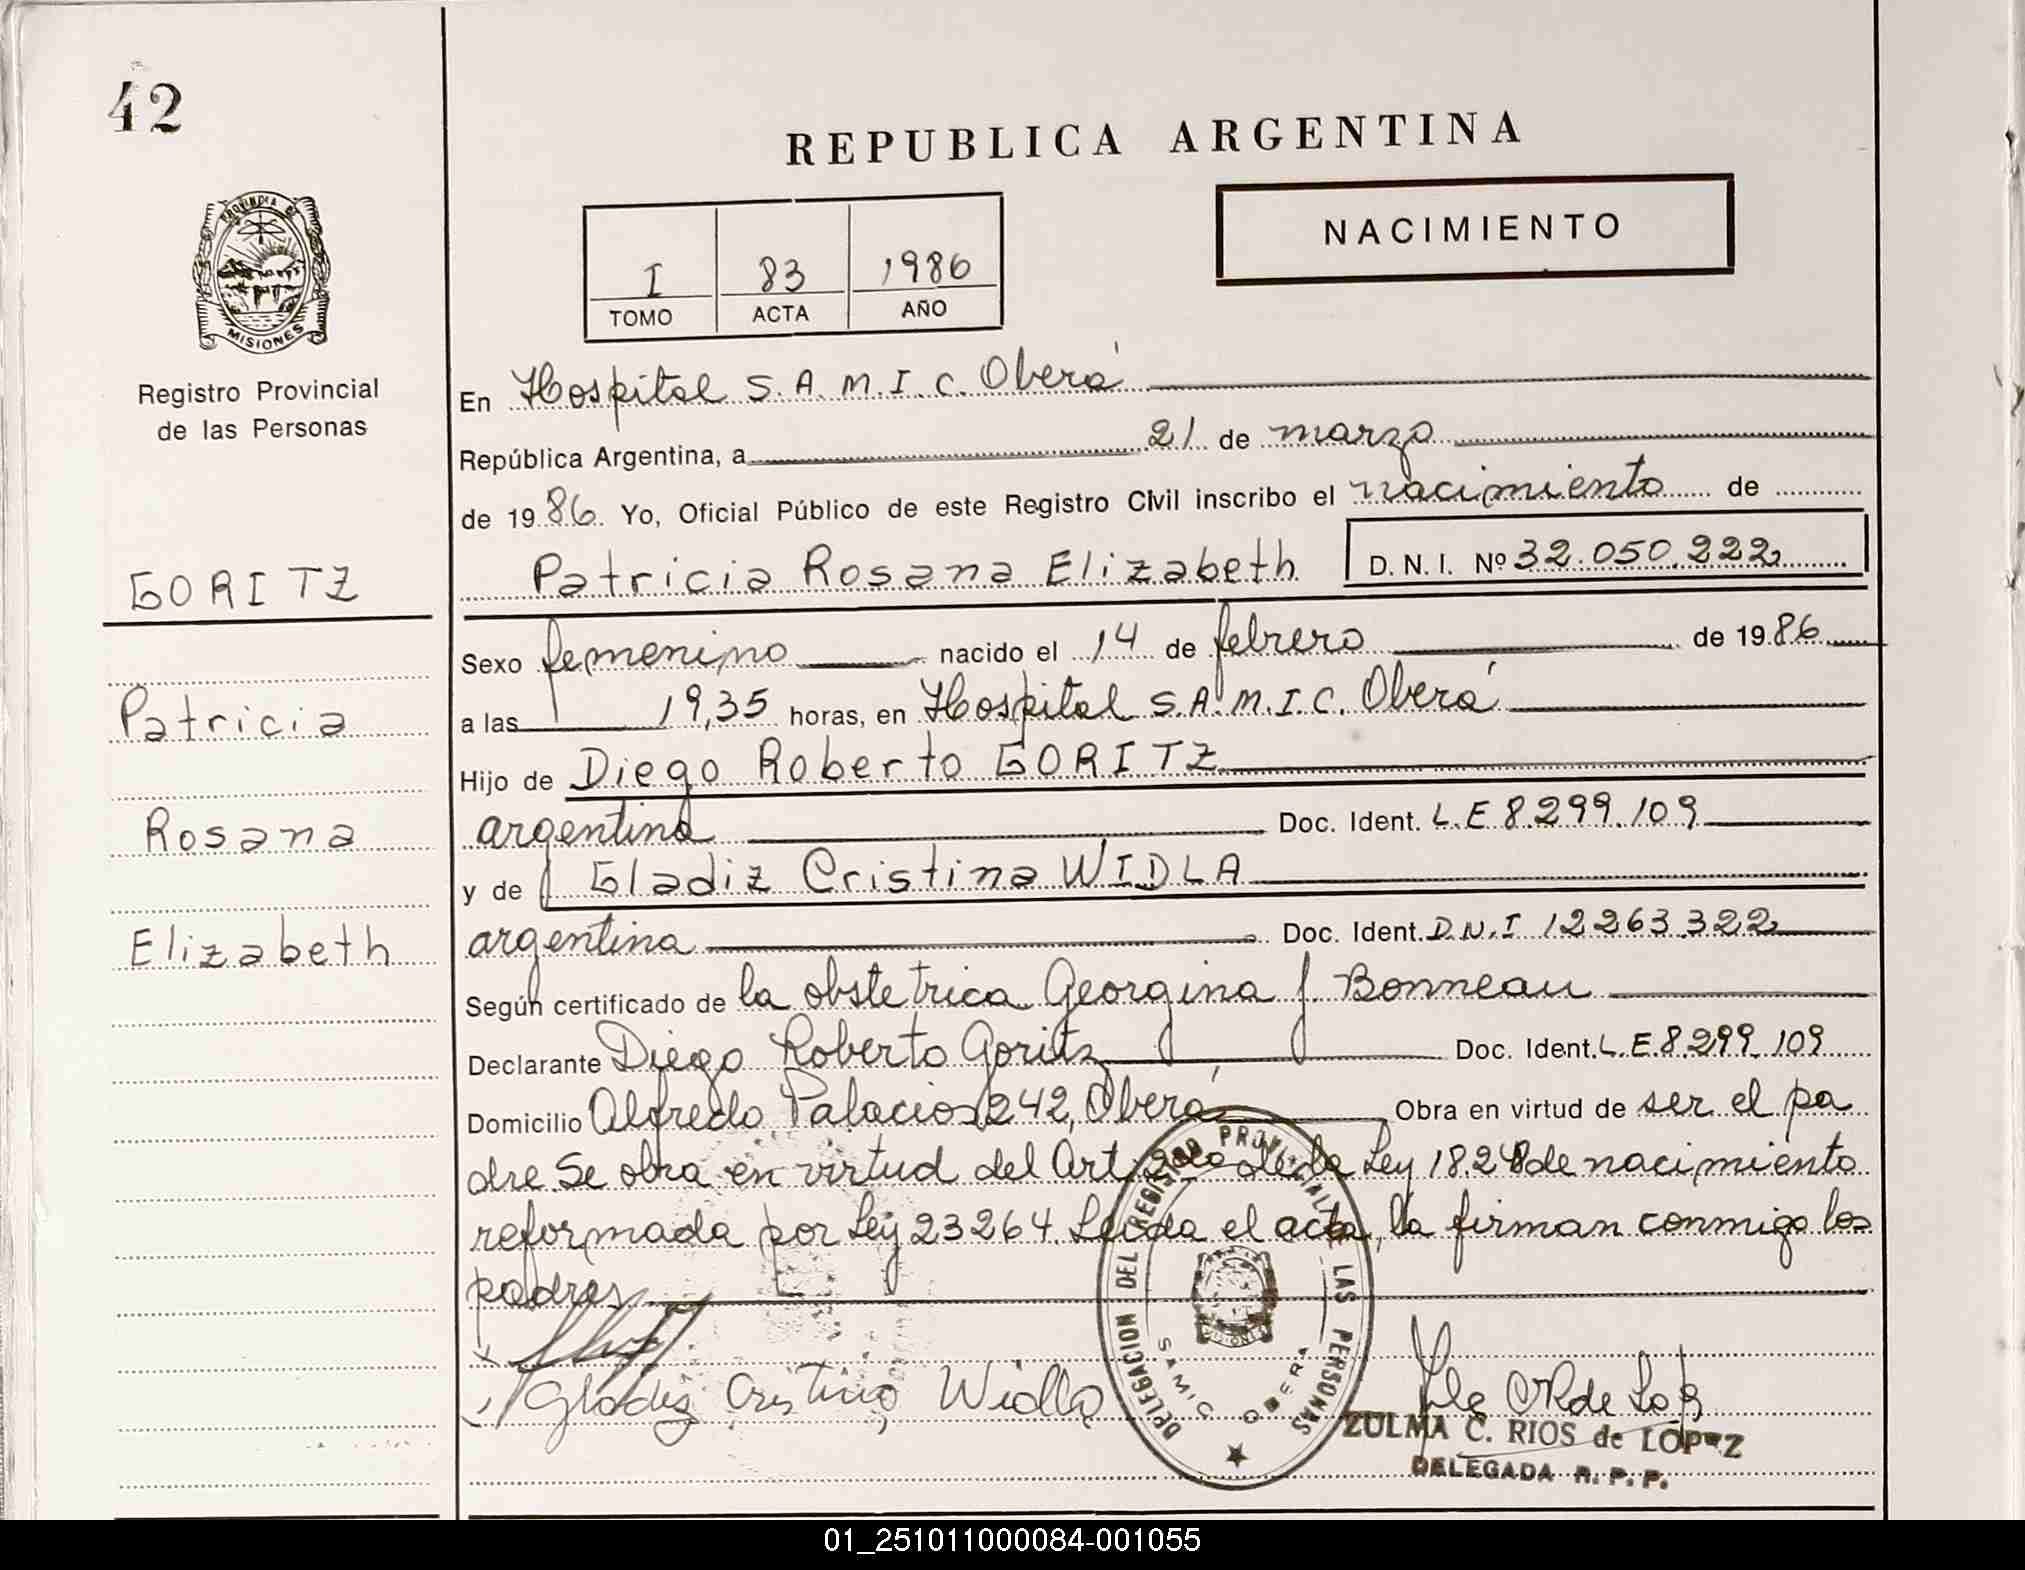 42
REPUBLICA ARGENTINA
I 83 1986
TOMO ACTA AÑO
NACIMIENTO
PROVINCIA DE MISIONES
Registro Provincial
de las Personas
GORITZ
Patricia
Rosana
Elizabeth
En Hospital S.A.M.I.C. Oberá
República Argentina, a 21 de marzo
de 1986. Yo, Oficial Público de este Registro Civil inscribo el nacimiento de
Patricia Rosana Elizabeth D.N.I. Nº 32.050.222
Sexo femenino nacido el 14 de febrero de 1986
a las 19,35 horas, en Hospital S.A.M.I.C. Oberá
Hijo de Diego Roberto GORITZ
argentino Doc. Ident. L.E 8.299.109
y de Gladiz Cristina WIDLA
argentina Doc. Ident. D.N.I 12263322
Según certificado de la obstetrica Georgina J. Bonneau
Declarante Diego Roberto Goritz Doc. Ident. L.E.8.299.109
Domicilio Alfredo Palacios 242, Oberá Obra en virtud de ser el pa
dre. Se obra en virtud del Art. 2do de la Ley 18.248 de nacimiento
reformada por Ley 23264. Leida el acta, la firman conmigo los
padres
Gladiz Cristina Widla
DELEGACION DEL REGISTRO PROVINCIAL DE LAS PERSONAS
SAMIC OBERA
MISIONES
ZULMA C. RIOS de LOPEZ
DELEGADA R.P.P.
01_251011000084-001055